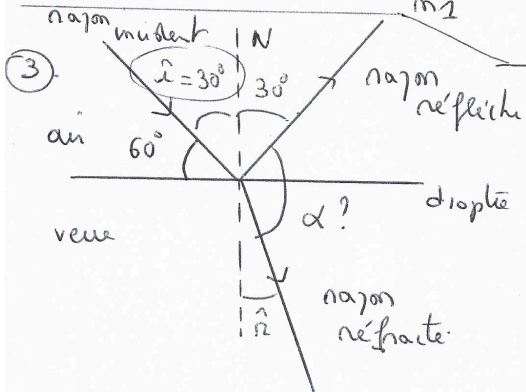 m1
rayon incident
N
3
î = 30°
30°
rayon réfléchi
air
60°
dioptre
α ?
verre
rayon réfracté.
r̂